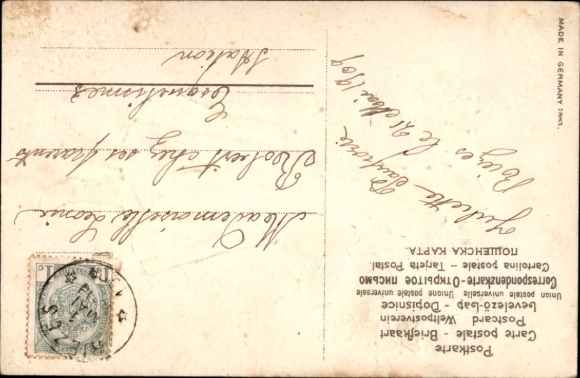 Postkarte
Carte postale – Briefkaart
Postcard Weltpostverein
Levelező-Lap – Dopisnice
Union postale universelle Unione postale universale
Correspondenzkarte-Открытое письмо
Cartolina postale – Tarjeta Postal.
ПОЩЕНСКА КАРТА.
Juliette
le 21 Mai 1909
Mademoiselle Léonie
Robert chez ses parents
Station
MADE IN GERMANY